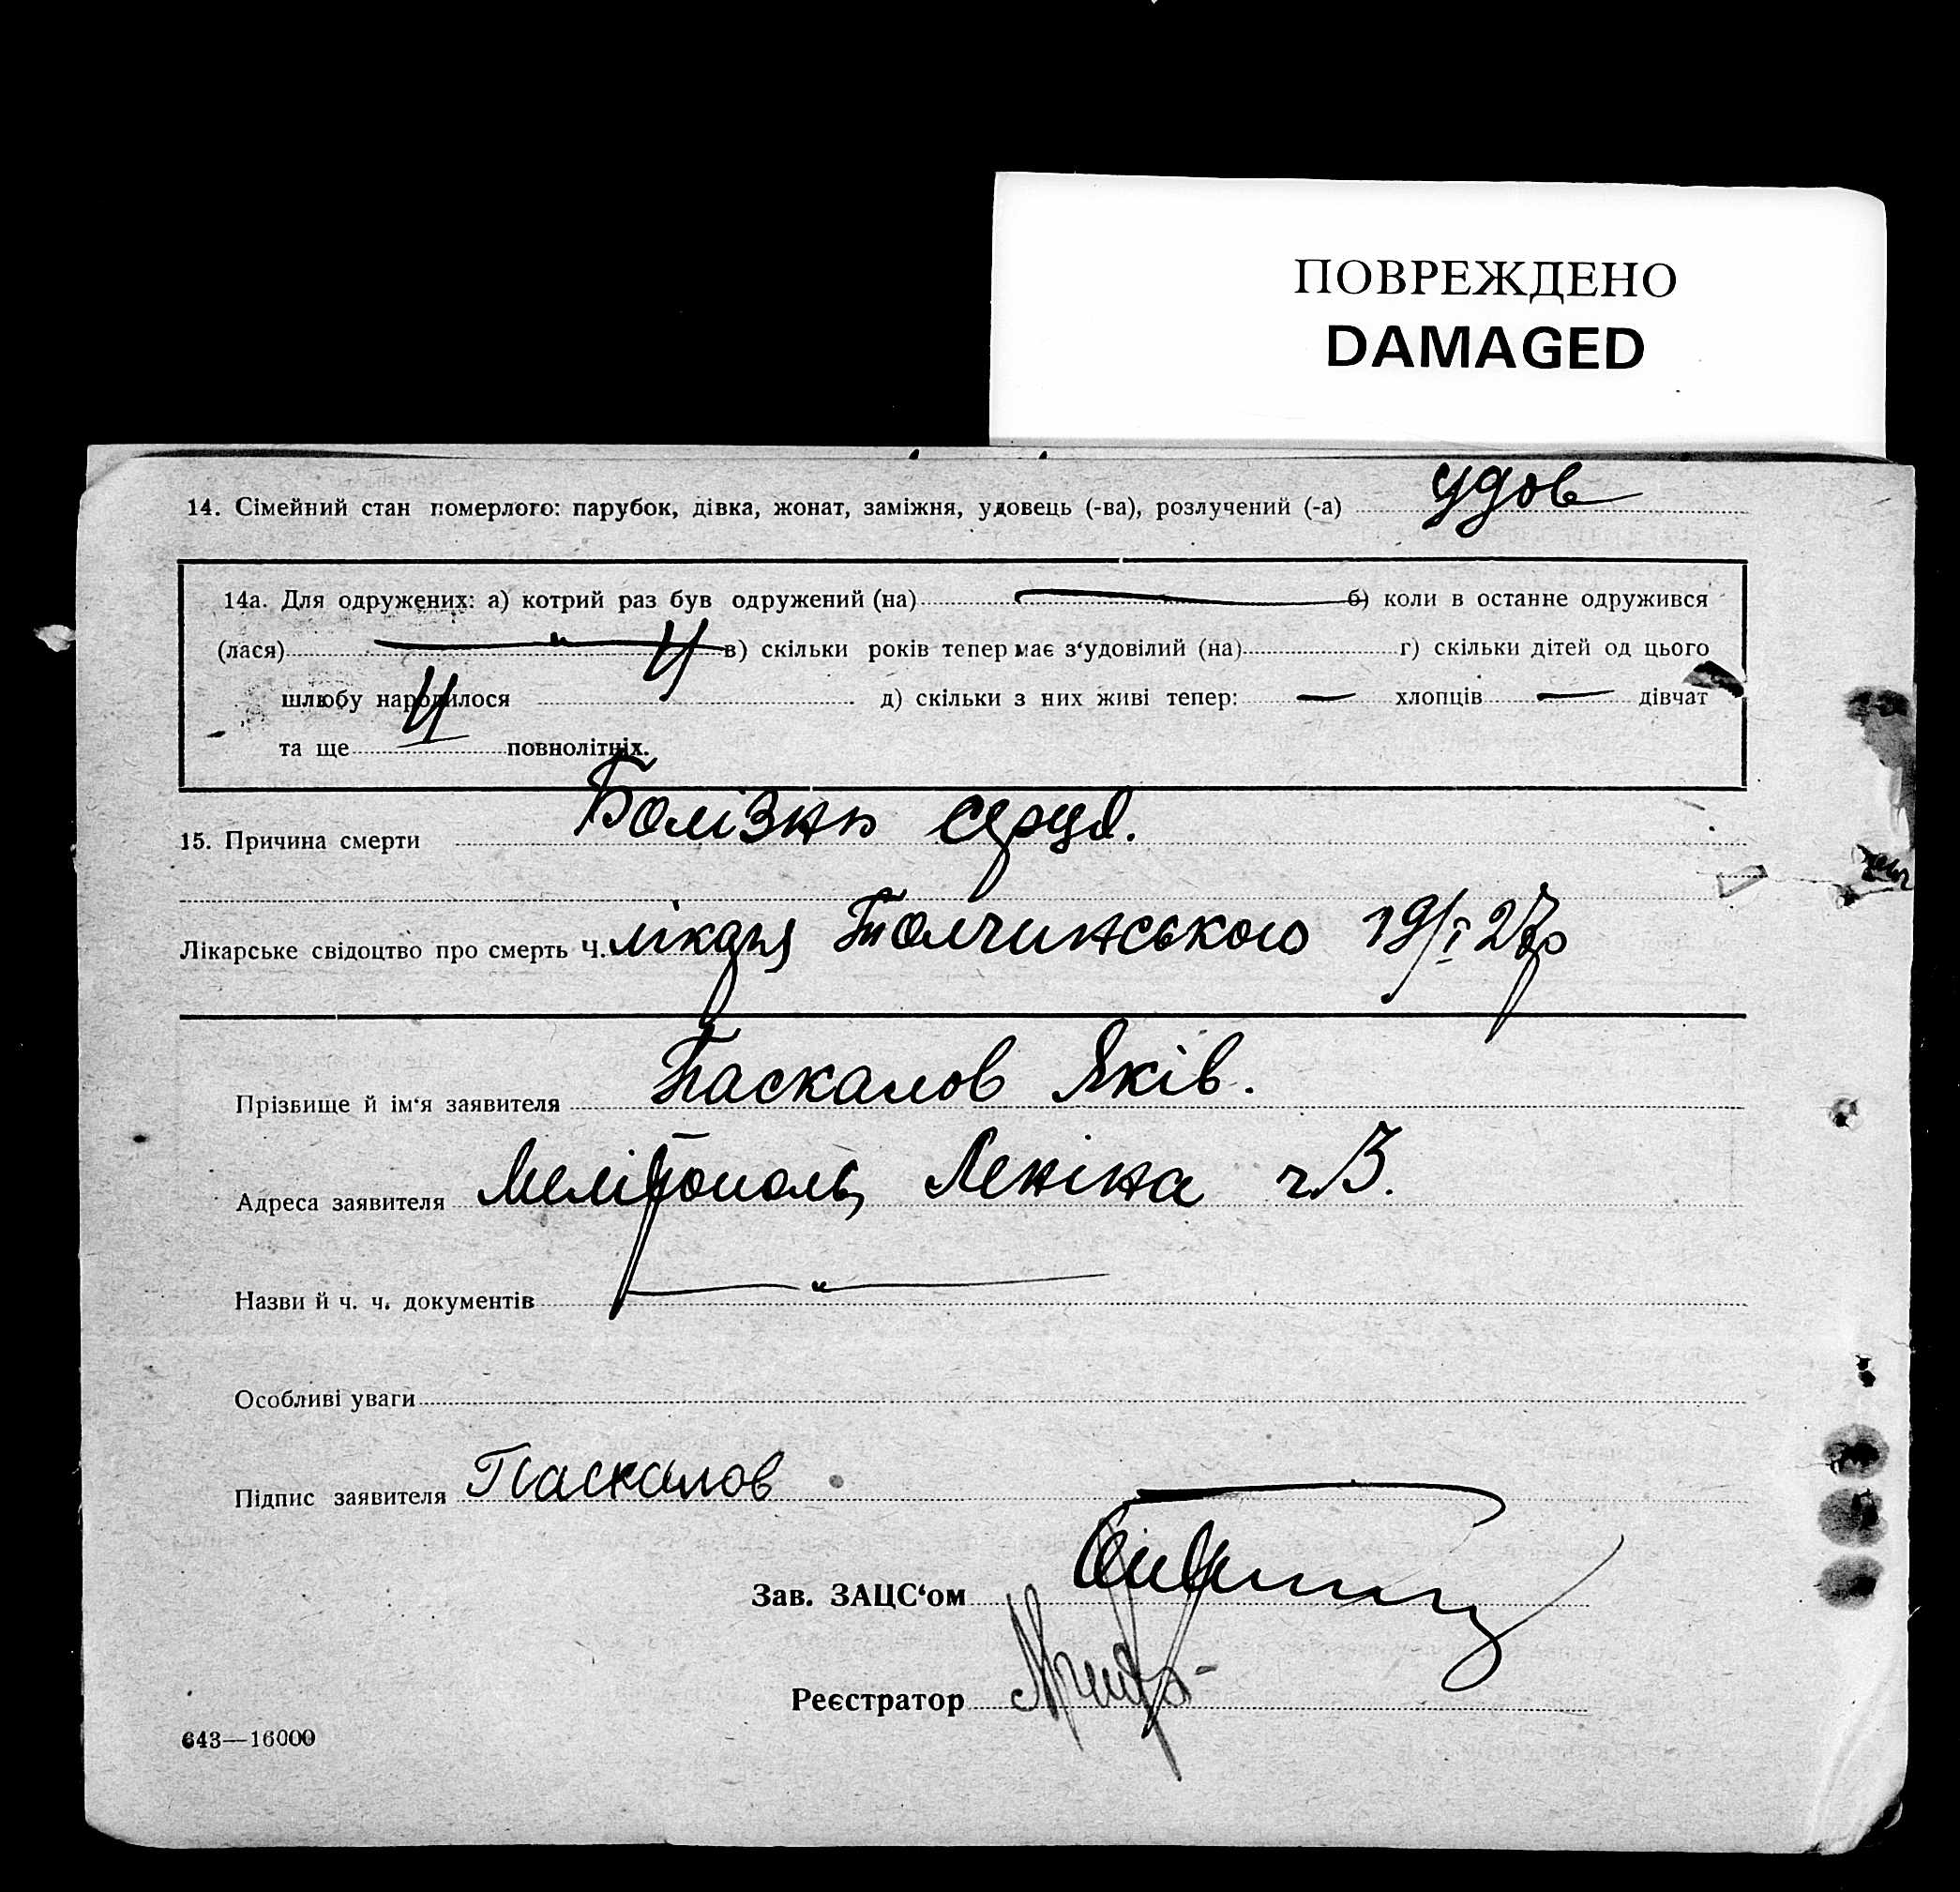 ПОВРЕЖДЕНО
DAMAGED
14. Сімейний стан померлого: парубок, дівка, жонат, заміжня, удовець (-ва), розлучений (-а) удов
14а. Для одружених: а) котрий раз був одружений (на) — б) коли в останнє одружився
(лася) — " — в) скільки років тепер має з‘удовілий (на) г) скільки дітей од цього
шлюбу народилося 4 д) скільки з них живі тепер: — хлопців — дівчат
та ще 4 повнолітніх.
15. Причина смерти Болізнь серця.
Лікарське свідоцтво про смерть Ч. лікаря Толчинського 19/I 27р
Прізвище й ім‘я заявителя Паскалов Яків.
Адреса заявителя Мелітополь, Леніна
Назви й ч. ч. документів — " —
Особливі уваги
Підпис заявителя Паскалов
Зав. ЗАЦС‘ом
Реєстратор
643—16000